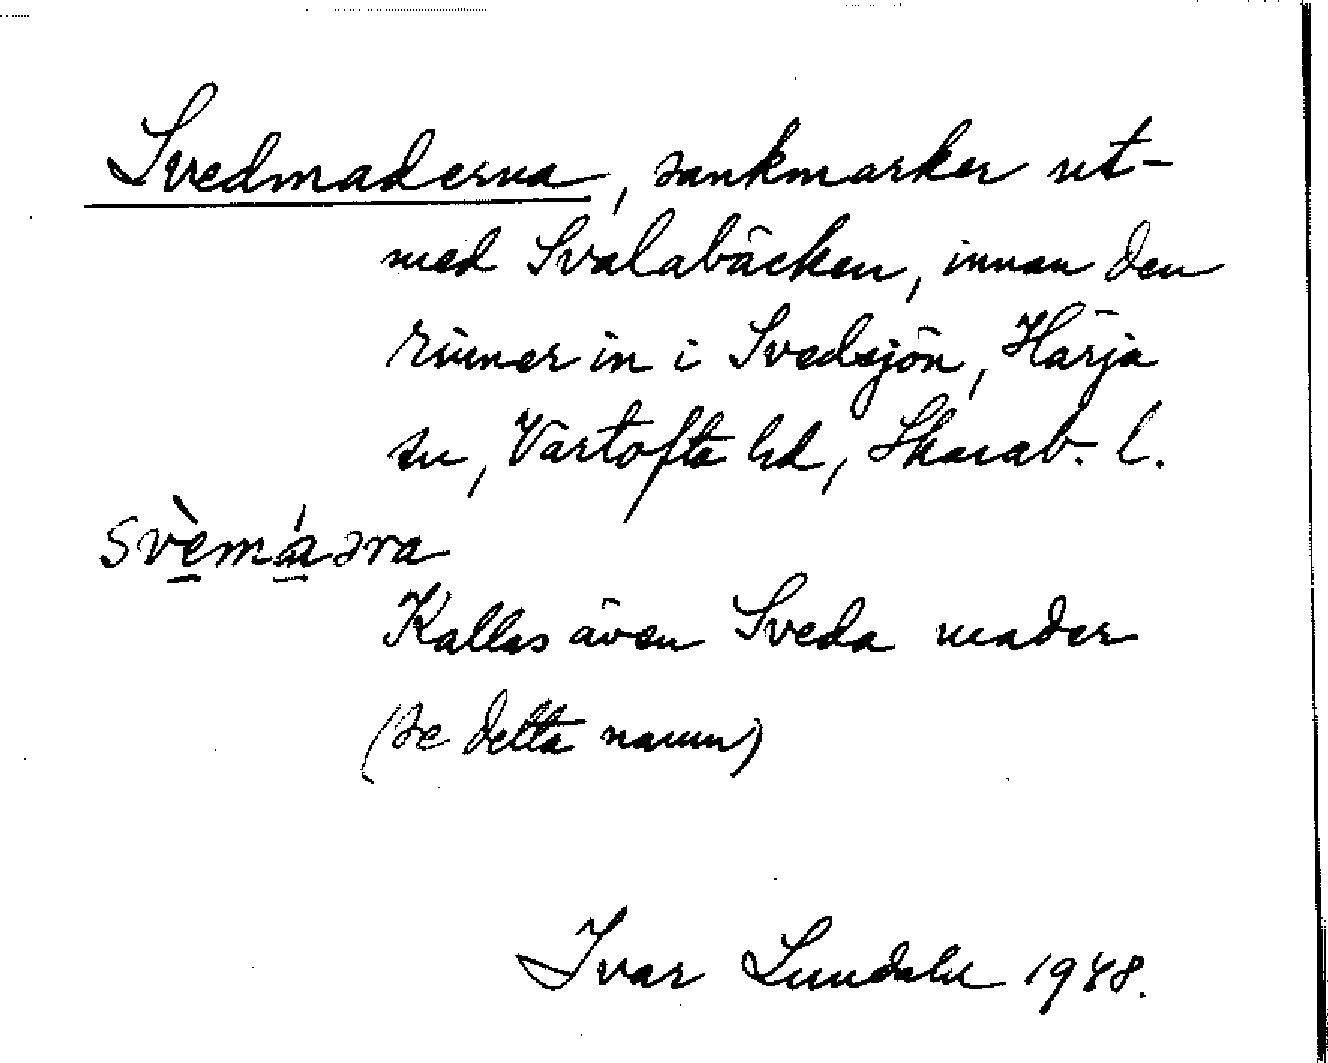 Svedmaderna, sankmarker ut-
med Svalabäcken, innan den
rinner in i Svedsjön, Härja
sn, Vartofta hd, Skarab. l.
svèmáəra
Kallas även Sveda mader
(se detta namn)
Ivar Lundahl 1948.